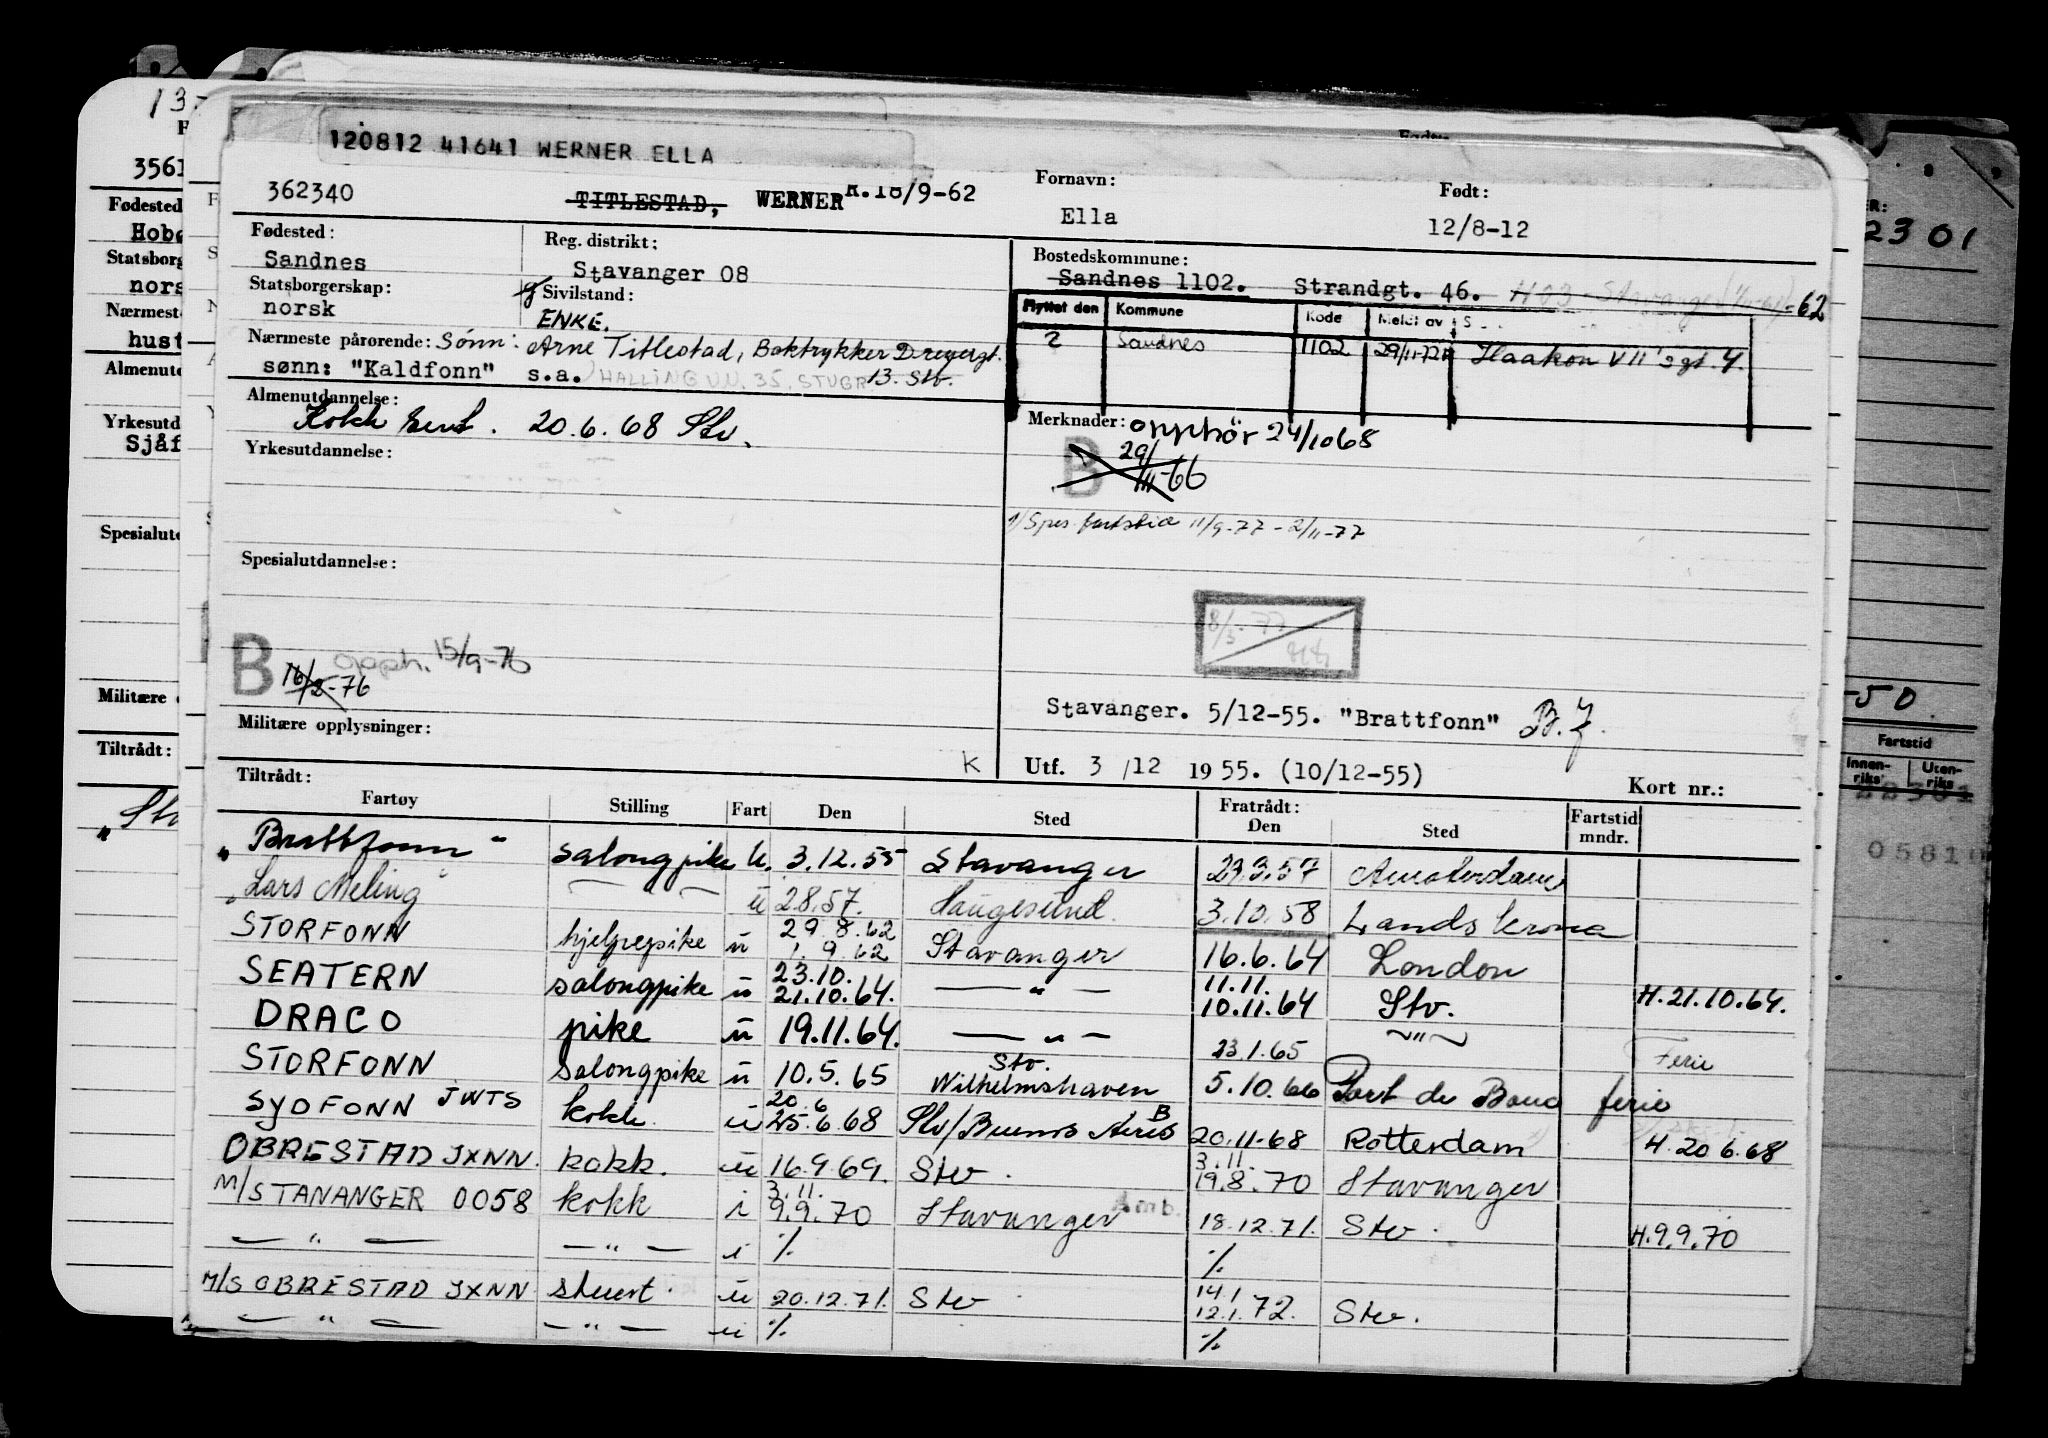 120812 41641 WERNER ELLA
362340 TITLESTAD, WERNER K.18/9-62
Fornavn:
Ella
Født:
12/8-12
Fødested:
Sandnes
Reg. distrikt:
Stavanger 08
Bostedskommune:
Sandnes 1102. Strandgt. 46. 1103 Stavanger -62
Statsborgerskap:
norsk
Sivilstand:
g
ENKE.
Flyttet den Kommune Kode Meldt av S
2 Sandnes 1102 29/11-72 Haakon VII's gt. 4.
Nærmeste pårørende: Sønn: Arne Titlestad, Boktrykker Dreyergt.
sønn: "Kaldfonn" s.a. HALLINGVN. 35, STVGR 13. Stv.
Almenutdannelse:
Kokk sert. 20.6.68 Stv.
Merknader: opphör 24/10 68
B 29/III-66
Yrkesutdannelse:
1) Spes. fartstid 11/9-77 - 2/11-77
Spesialutdannelse:
8/3-77
B 16/2-76 opph. 15/9-76
Stavanger. 5/12-55. "Brattfonn" B.J.
Militære opplysninger:
K
Utf. 3/12 1955. (10/12-55)
Kort nr.:
Tiltrådt:
Fartøy Stilling Fart Den Sted Fratrådt: Den Sted Fartstid mndr.
"Brattfonn" salongpike u. 3.12.55 Stavanger 23.3.57 Amsterdam
"Lars Meling" — — u 2.8.57. Haugesund. 3.10.58 Landskrona
STORFONN hjelpepike u 29.8.62 1.9.62 Stavanger 16.6.64 London
SEATERN salongpike u 23.10. 21.10.64. — " — 11.11. 10.11.64 Stv. H.21.10.64.
DRACO pike u 19.11.64. — " — 23.1.65 — " — Ferie
STORFONN salongpike u 10.5.65 Stv. Wilhelmshaven 5.10.66 Port de Bouc ferie
SYDFONN JWTS kokk u 20.6 25.6.68 Stv/Buenos Aires B 20.11-68 Rotterdam H. 20.6.68
OBRESTAD JXNN. kokk. u 16.9.69. Stv. 3.11. 19.8.70 Stavanger
M/S TANANGER 0058 kokk i 3.11. 9.9.70 Stavanger Amb. 18.12.71. Stv. H.9.9.70
— " — — " — i % %
M/S OBRESTAD JXNN stuert. u 20.12.71. Stv 14.1 12.1.72. Stv.
— " — — " — u % %
137
3561
Fødested
Hobø
Statsborg
nors
Nærmest
hust
Almenutd
Yrkesutd
Sjåf
Spesialutd
Militære
Tiltrådt:
"Sto
ER:
2301
-50
Fartstid
Innenriks Utenriks
0581